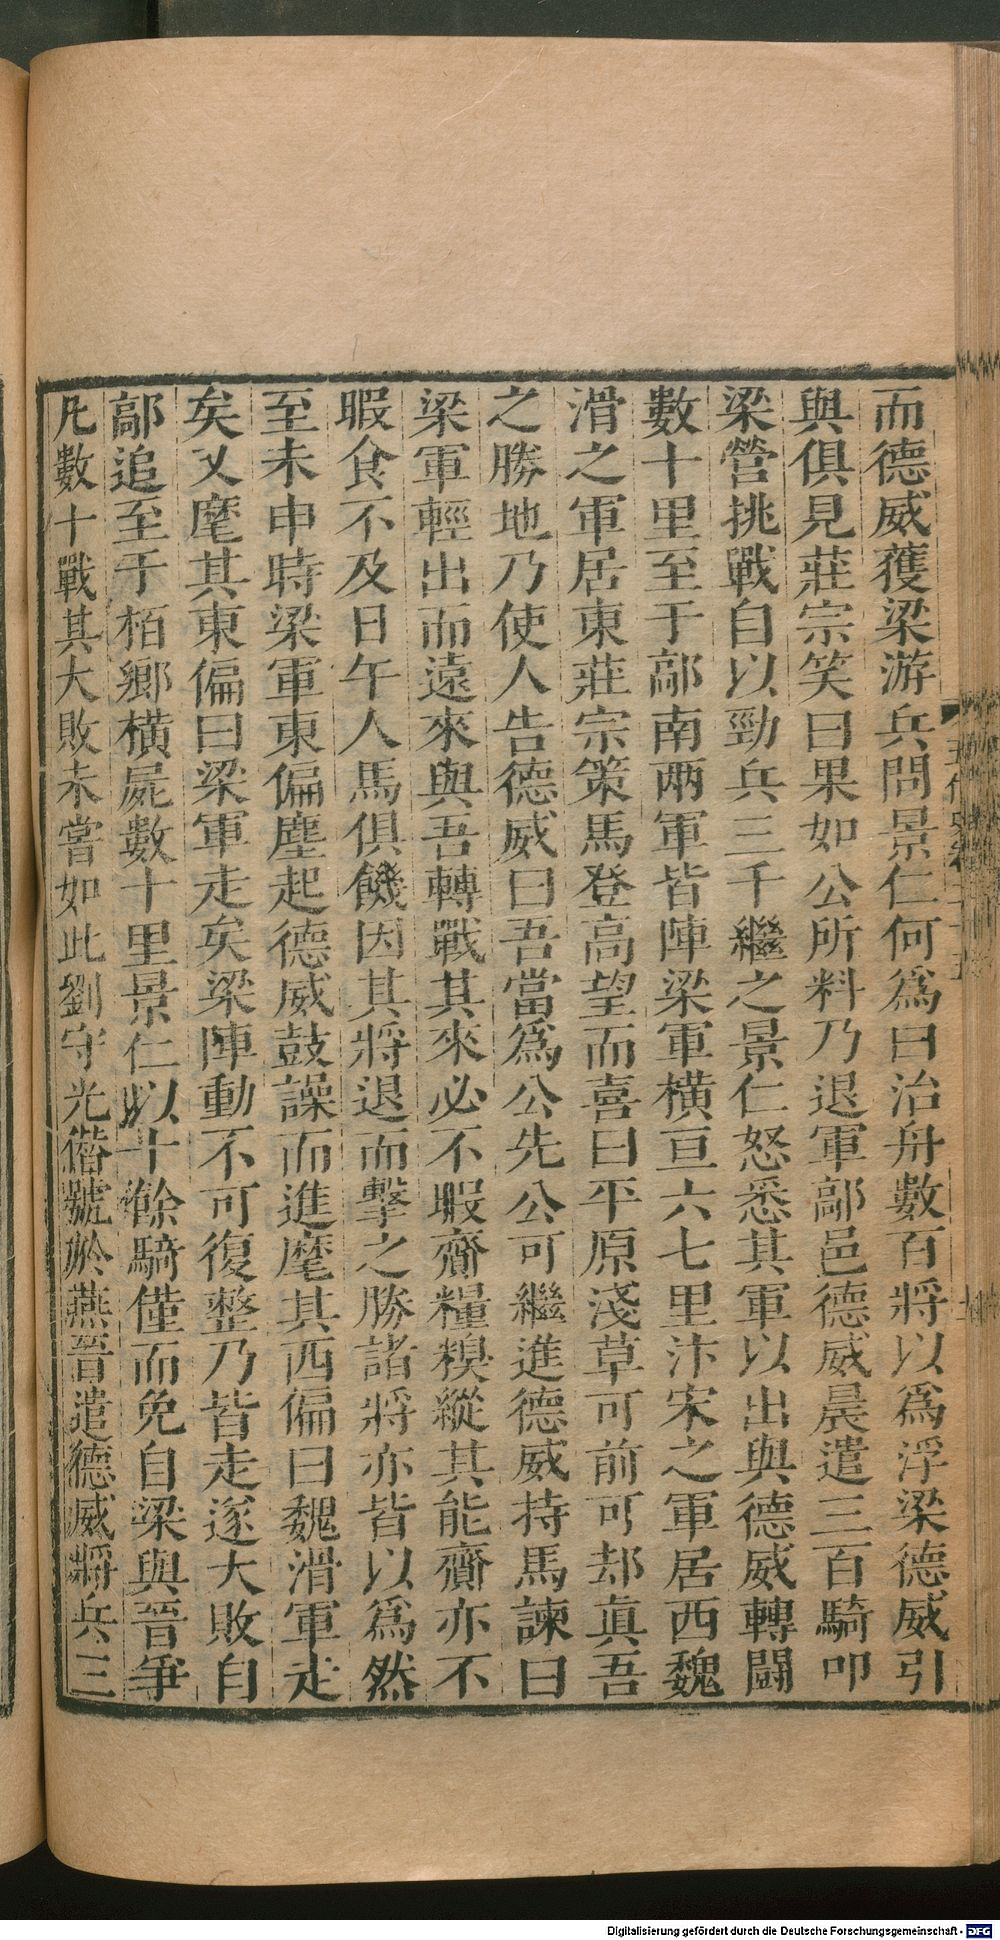 而德威獲梁游兵問景仁何爲曰治舟數百將以爲浮梁德威引
與俱見莊宗笑曰果如公所料乃退軍鄗邑德威晨遣三百騎叩
梁營挑戰自以勁兵三千繼之景仁怒悉其軍以出與德威轉鬬
數十里至于鄗南兩軍皆陣梁軍橫亘六七里汴宋之軍居西魏
滑之軍居東莊宗策馬登高望而喜曰平原淺草可前可却真吾
之勝地乃使人告德威曰吾當爲公先公可繼進德威持馬諫曰
梁軍輕出而遠來與吾轉戰其來必不暇齎糧糗縱其能齎亦不
暇食不及日午人馬俱饑因其將退而擊之勝諸將亦皆以爲然
至未申時梁軍東偏塵起德威鼓譟而進麾其西偏曰魏滑軍走
矣又麾其東偏曰梁軍走矣梁陣動不可復整乃皆走遂大敗自
鄗追至于栢鄉橫屍數十里景仁以十餘騎僅而免自梁與晉爭
凡數十戰其大敗未嘗如此劉守光僭號於燕晉遣德威將兵三
Digitalisierung gefördert durch die Deutsche Forschungsgemeinschaft - DFG